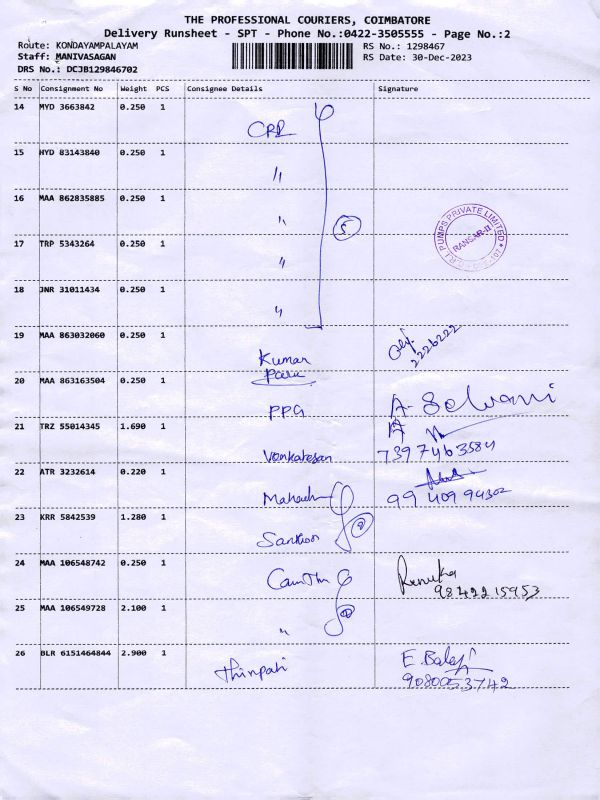 THE PROFESSIONAL COURIERS, COIMBATORE
Delivery Runsheet - SPT - Phone No.:0422-3505555 - Page No.:2
Route: KONDAYAMPALAYAM
RS No.: 1298467
Staff: MANIVASAGAN
RS Date: 30-Dec-2023
DRS No.: DCJB129846702
S No Consignment No Weight PCS Consignee Details Signature
14 MYD 3663842 0.250 1
CRP
15 HYD 83143840 0.250 1
"
16 MAA 862835885 0.250 1
"
5
PUMPS PRIVATE LIMITED
17 TRP 5343264 0.250 1
"
18 JNR 31011434 0.250 1
"
19 MAA 863032060 0.250 1
Kumar
2226222
20 MAA 863163504 0.250 1
PPG A. Selvani
21 TRZ 55014345 1.690 1
Venkatesan 7397463584
22 ATR 3232614 0.220 1
99 409 94302
23 KRR 5842539 1.280 1
2
24 MAA 106548742 0.250 1
Renuka
9842215953
25 MAA 106549728 2.100 1
"
26 BLR 6151464844 2.900 1
Thinpati E. Balaji
9080053742